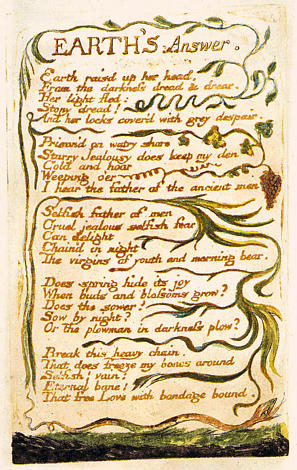 EARTH'S Answer.
Earth rais'd up her head,
From the darkness dread & drear.
Her light fled:
Stony dread!
And her locks cover'd with grey despair.
Prison'd on watry shore
Starry Jealousy does keep my den
Cold and hoar
Weeping o'er
I hear the father of the ancient men
Selfish father of men
Cruel jealous selfish fear
Can delight
Chain'd in night
The virgins of youth and morning bear.
Does spring hide its joy
When buds and blossoms grow?
Does the sower?
Sow by night?
Or the plowman in darkness plow?
Break this heavy chain.
That does freeze my bones around
Selfish! vain!
Eternal bane!
That free Love with bondage bound.